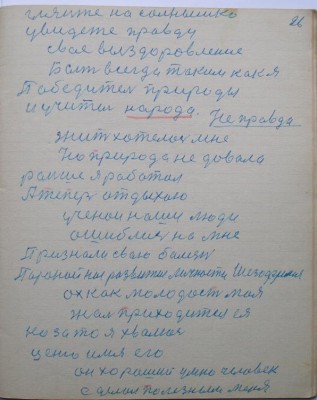 гляжте на солнышко
26
увидете правду
свае выздоровление
Болт всегда таким как я
Победител природы
и учител народа. Не правда
жит хотелос мне
Но природа не довала
раньше я работал
А тепер отдыхаю
ученои наши люди
ошиблис на мне
Признали сваю балезн
Параной ное развитие личности Шезофрения
ох как молодост моя
жал приходится ея
но зато я хвалюс
цень имя его
он хороший умно человек
сделал полезным меня